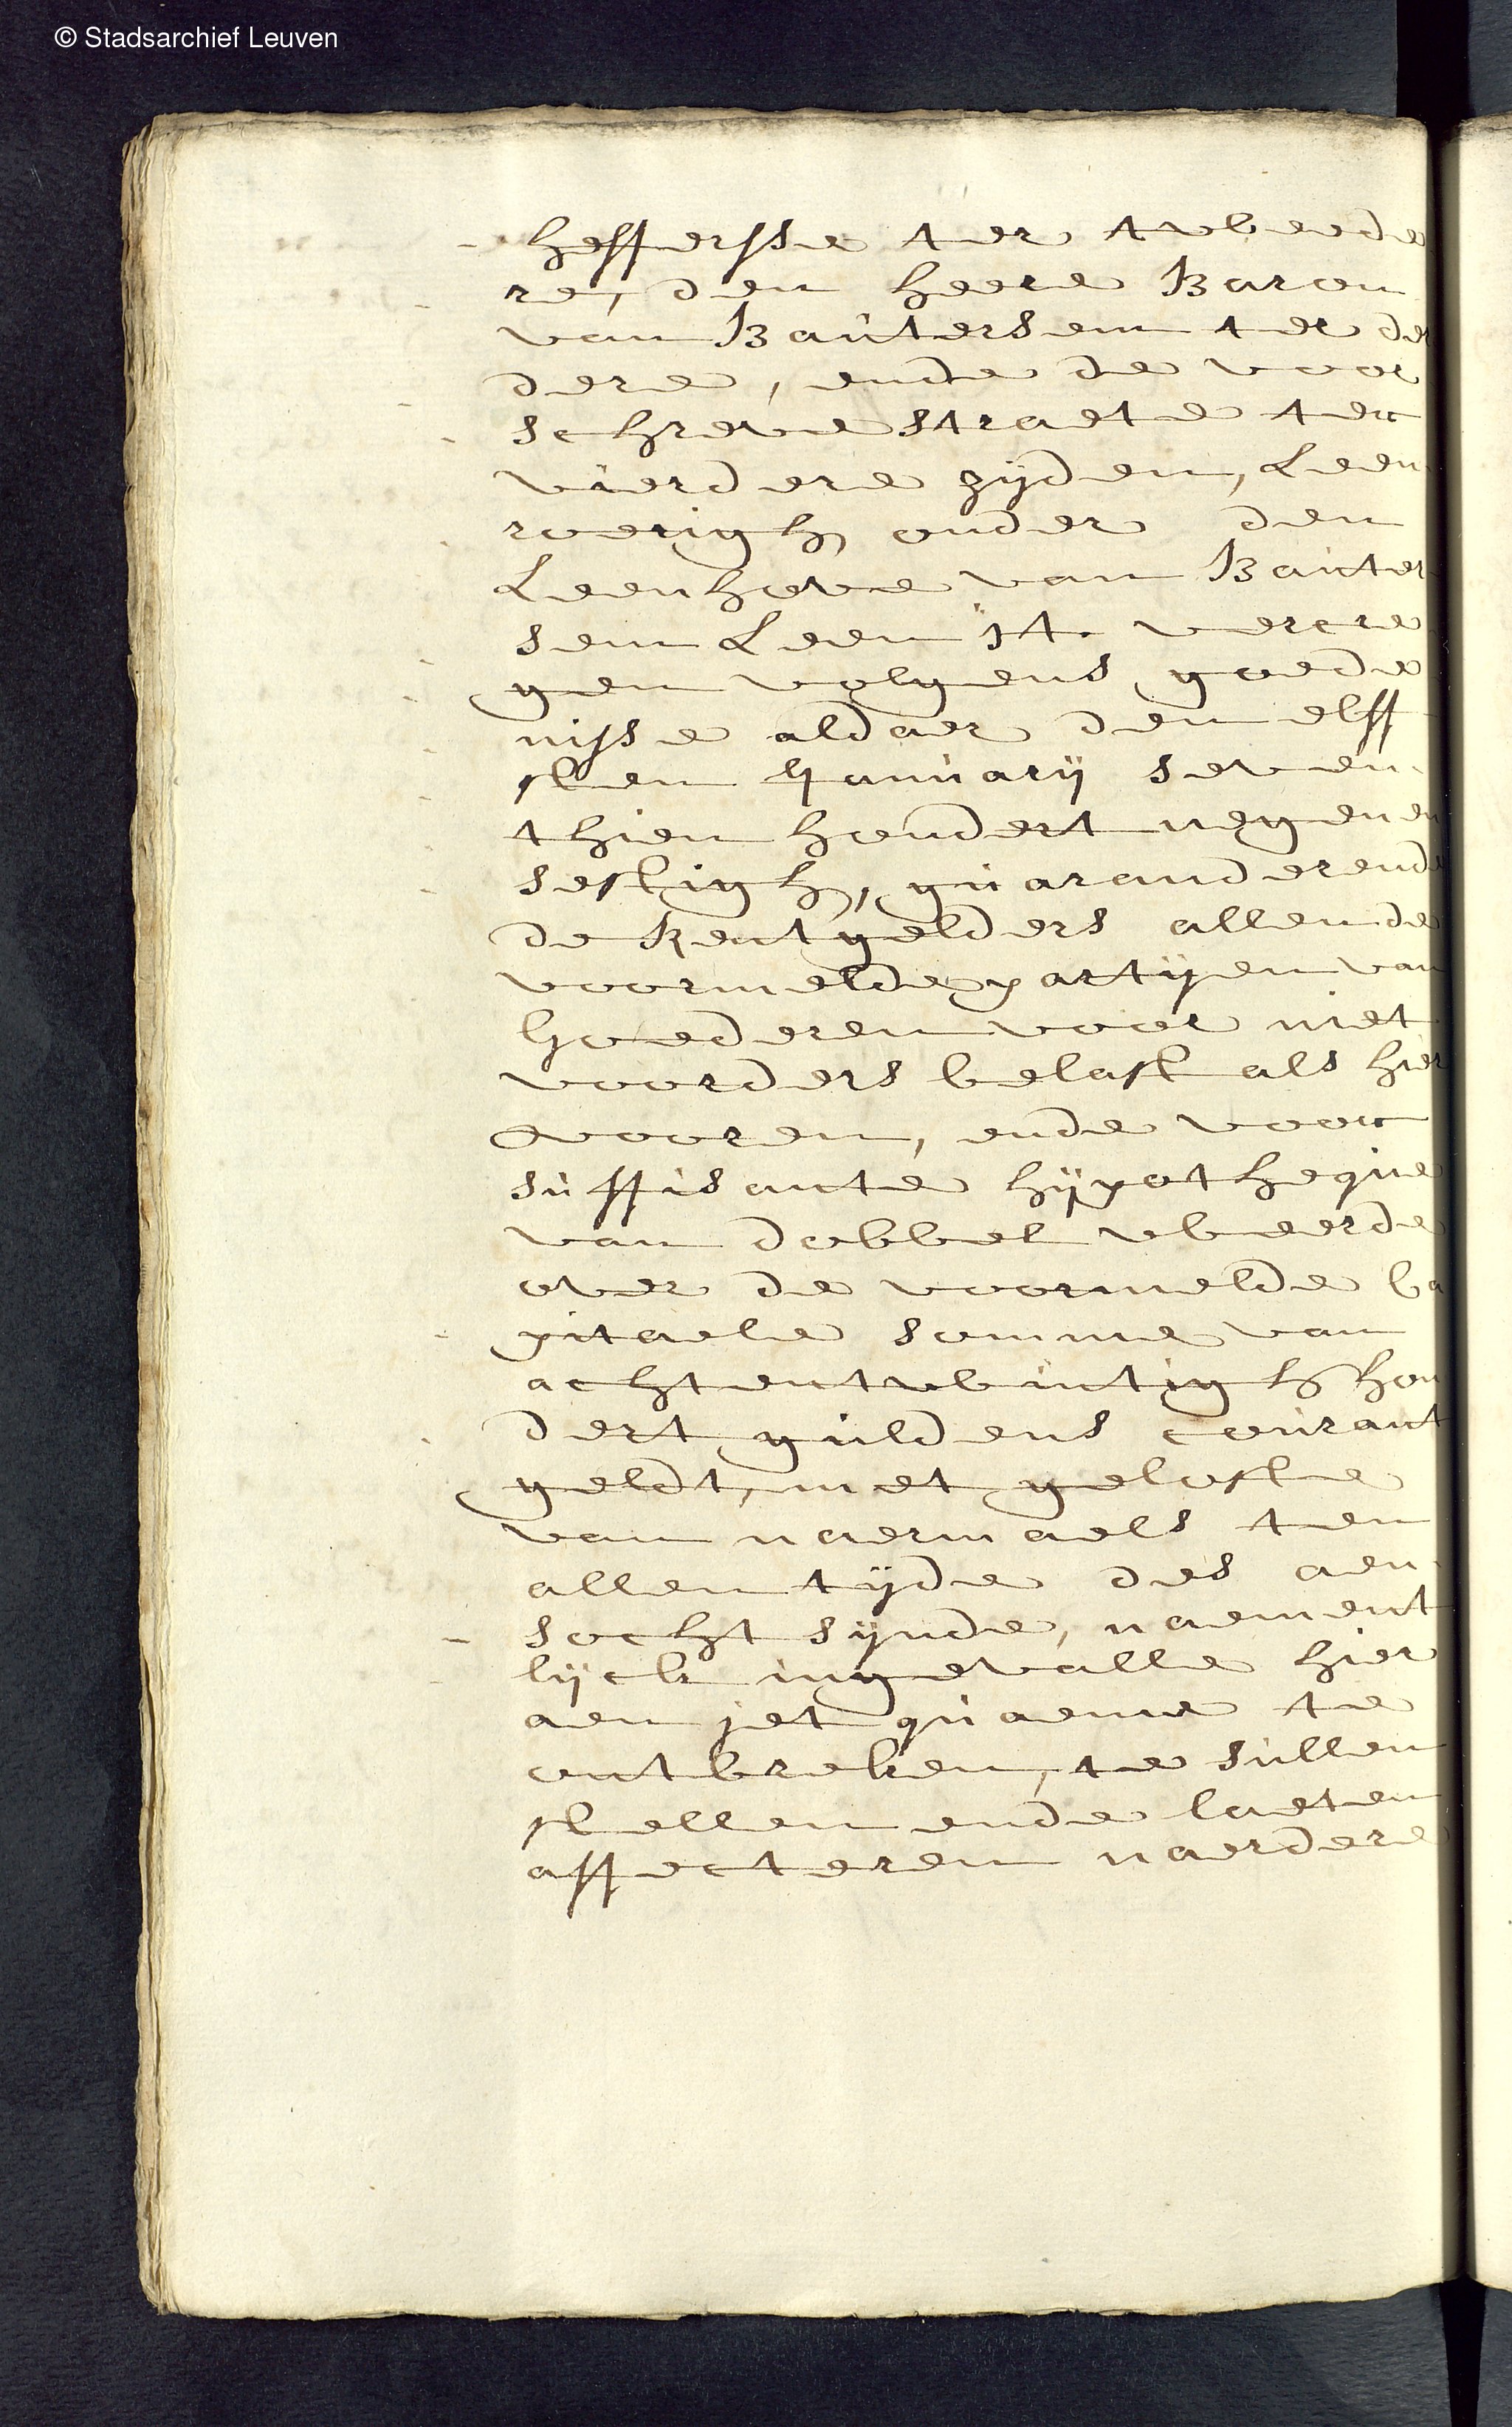 © Stadsarchief Leuven
hessersse ter tweede
re, den heere Baron
van Bautersem ter der
dere, ende de voor
schreve straete ter
vierdere zijden, Leen
roerigh onder den
Leenhove van Bauter
sem Leen 14. vercre
gen volgens goede
nisse aldaer den elff
sten January seven
thien hondert negenen
sestigh, guaranderende
de Rentgelders alle de
voormelde partijen van
goederen voor niet
voorders belast als hier
vooren, ende voor
suffisante hijpotheque
van dobbel weerde
over de voormelde Ca
pitaele somme van
achtentwintigh hon
dert guldens courant
geldt, met geloste
van naermaels ten
allen tijde des aen
socht sijnde, naement
lijck ingevalle hier
aen jet quaeme te
ontbreken, te sullen
stellen ende laeten
affecteren naerdere